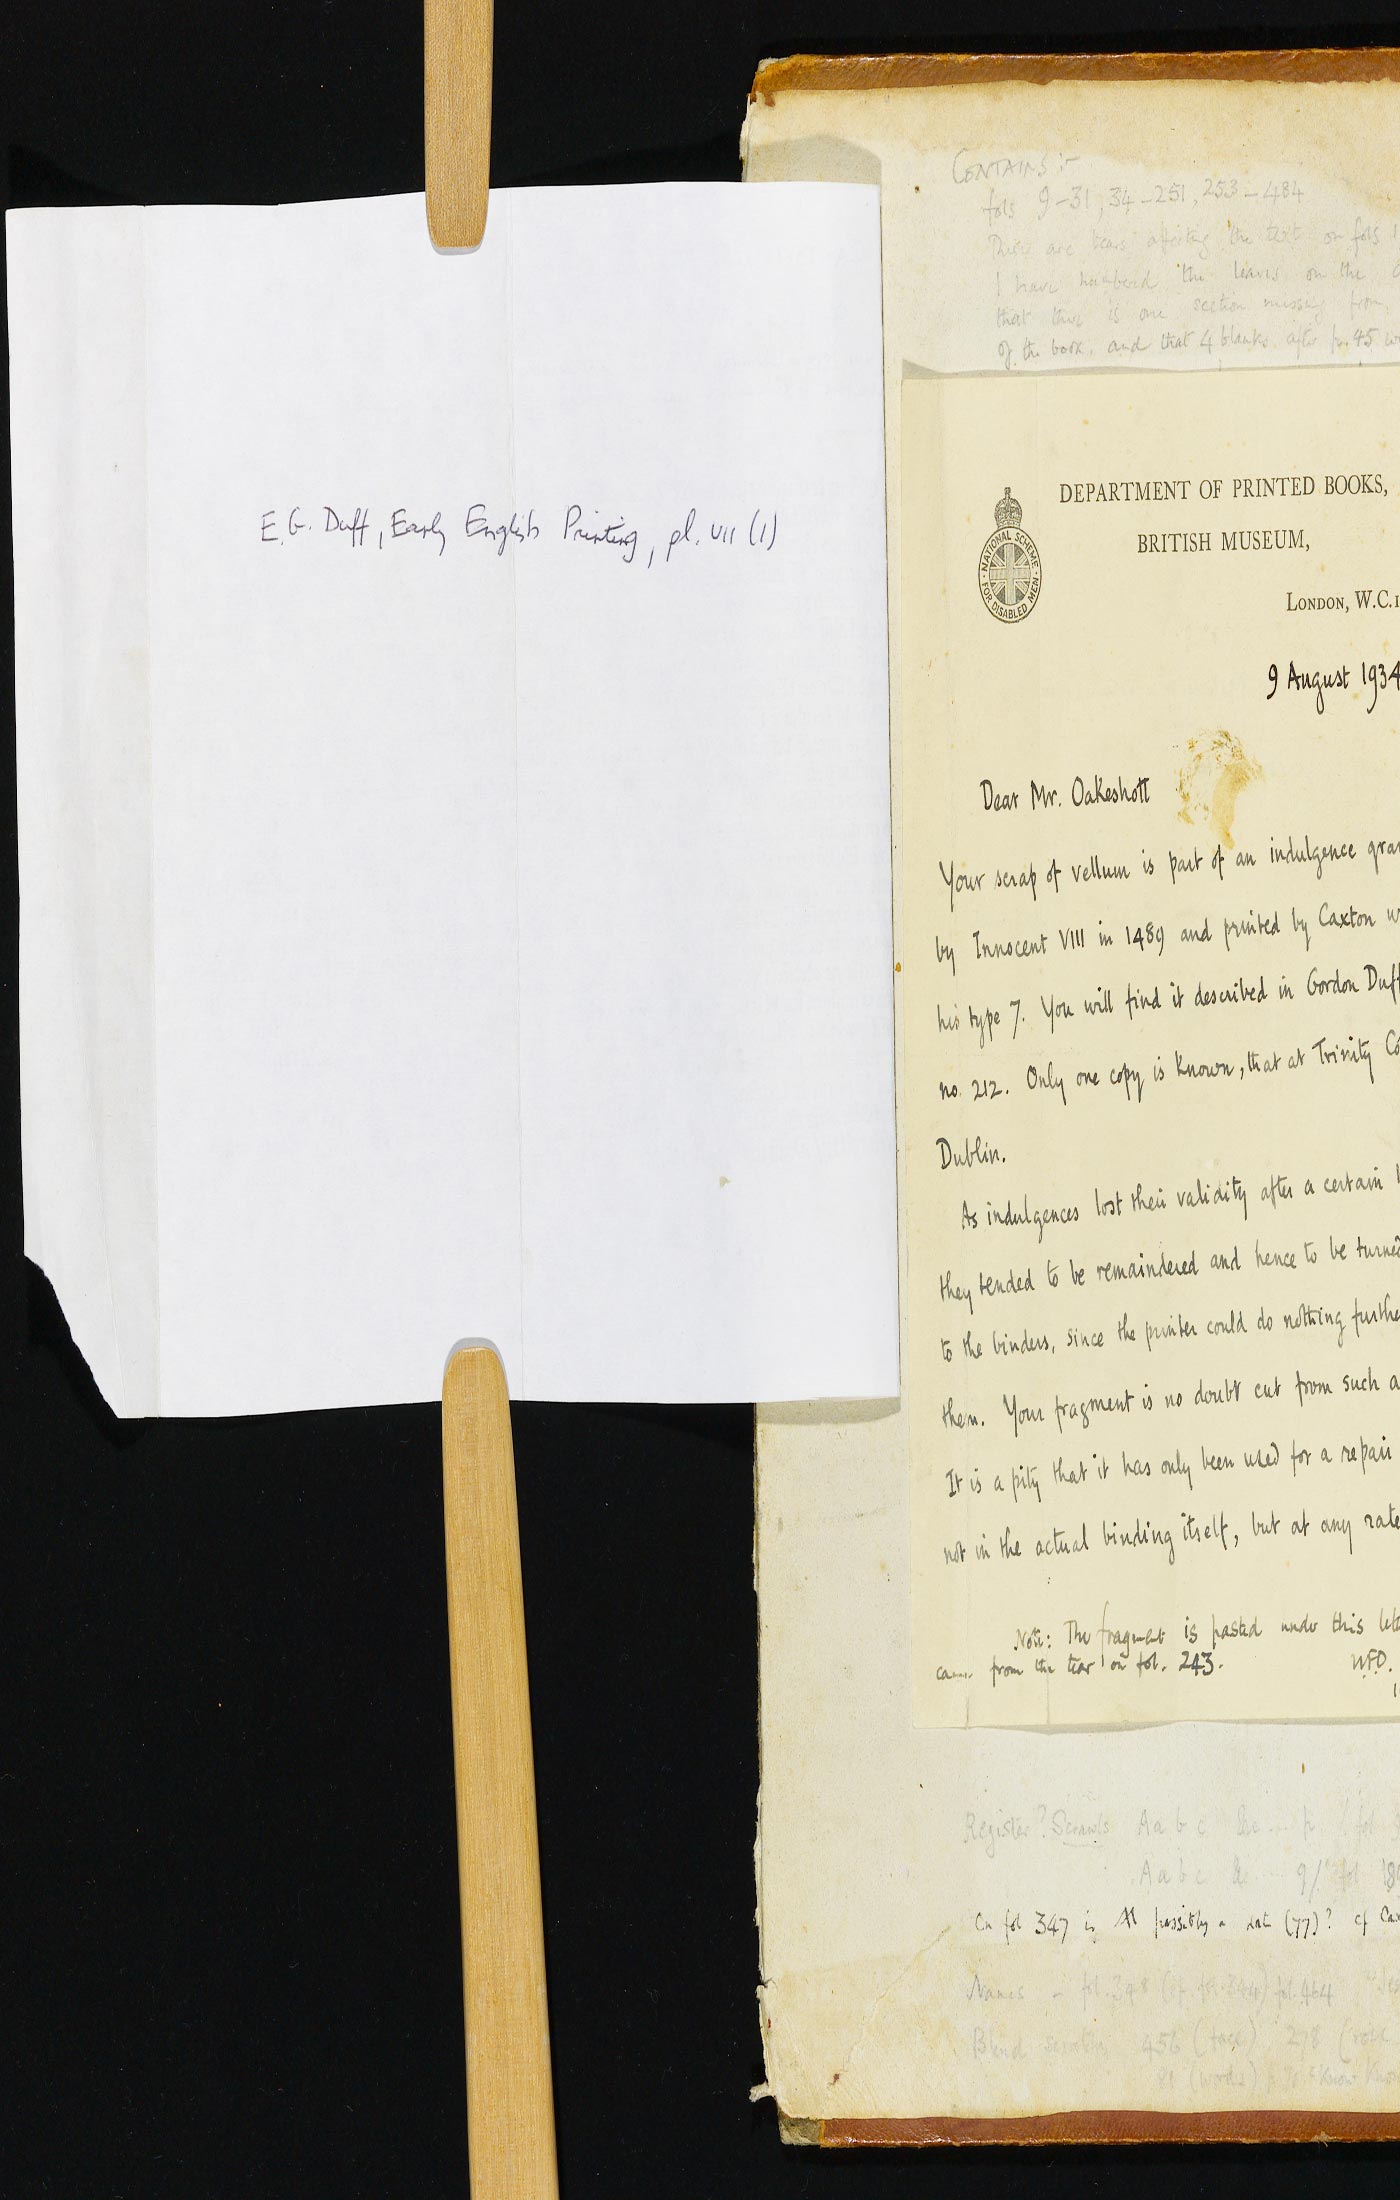 E.G. Duff, Early English Printing, pl. VII (1)
CONTAINS :-
fols 9-31, 34-251, 253-484
There are tears affecting the text on fols
I have numbered the leaves on the
that there is one section missing from
of the book. and that 4 blanks after p. 45
DEPARTMENT OF PRINTED BOOKS,
BRITISH MUSEUM,
NATIONAL SCHEME
FOR DISABLED MEN
LONDON, W.C.1
9 August 1934
Dear Mr. Oakeshott
Your scrap of vellum is part of an indulgence gra
by Innocent VIII in 1489 and printed by Caxton w
his type 7. You will find it described in Gordon Duff
no. 212. Only one copy is known, that at Trinity Co
Dublin.
As indulgences lost their validity after a certain
they tended to be remaindered and hence to be turned
to the binders, since the printer could do nothing furthe
them. Your fragment is no doubt cut from such a
It is a pity that it has only been used for a repair
not in the actual binding itself, but at any rate
Note: The fragment is pasted under this lett
came from the tear on fol. 243.
W.F.O.
Register? Scrawls A a b c &c
A a b c &c
On fol 347 is possibly a date (77)? cf Cax
Names - fol. 398 (cf. fol. 344) fol. 464
Blind 456 (face) 278
81 (words)